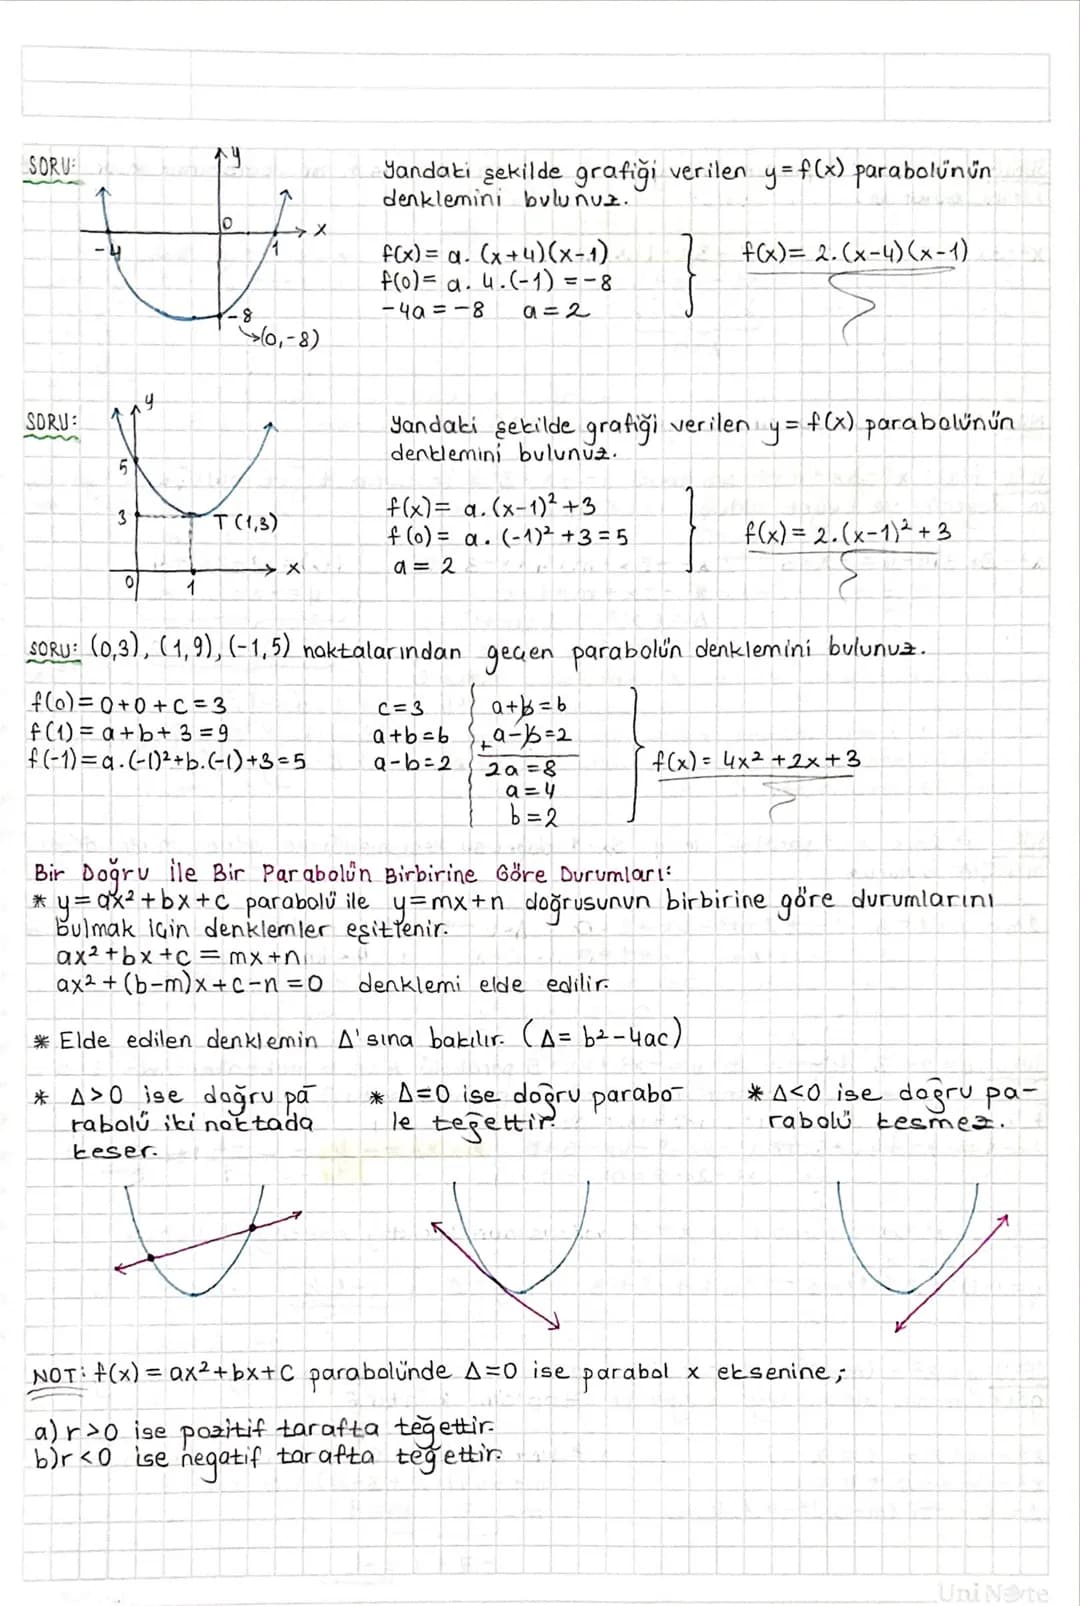 SORU:
y
0
x
-4
1
-8
(0,-8)
Yandaki şekilde grafiği verilen y=f(x) parabolünün
denklemini bulunuz.
f(x)= a. (x+4)(x-1)
f(0)= a. 4.(-1) = -8
-4a = -8 a = 2
f(x)= 2.(x-4)(x-1)
SORU:
y
5
3
T(1,3)
x
0
1
Yandaki şekilde grafiği verilen y=f(x) parabolünün
denklemini bulunuz.
f(x)= a.(x-1)²+3
f(0)= a. (-1)²+3=5
a = 2
f(x)= 2.(x-1)²+3
SORU: (0,3), (1,9), (-1,5) noktalarından geçen parabolün denklemini bulunuz.
f(0)=0+0+c=3
f(1)= a+b+3=9
f(-1)=a.(-1)²+b.(-1)+3=5
c=3
a+b=6
a-b=2
a+b=6
+ a-b=2
2a=8
a=4
b=2
f(x)= 4x²+2x+3
Bir Doğru ile Bir Parabolün Birbirine Göre Durumları:
* y=ax²+bx+c parabolü ile y=mx+n doğrusunun birbirine göre durumlarını
bulmak için denklemler eşitlenir.
ax²+bx+c = mx+n
ax²+(b-m)x+c-n=0 denklemi elde edilir.
* Elde edilen denklemin Δ'sına bakılır. (Δ= b²-4ac)
* Δ>0 ise doğru pa-
rabolü iki noktada
keser.
* Δ=0 ise doğru parabo-
le teğettir.
* Δ<0 ise doğru pa-
rabolü kesmez.
NOT: f(x)= ax²+bx+c parabolünde Δ=0 ise parabol x eksenine;
a) r>0 ise pozitif tarafta teğettir.
b) r<0 ise negatif tarafta teğettir.
UniNote